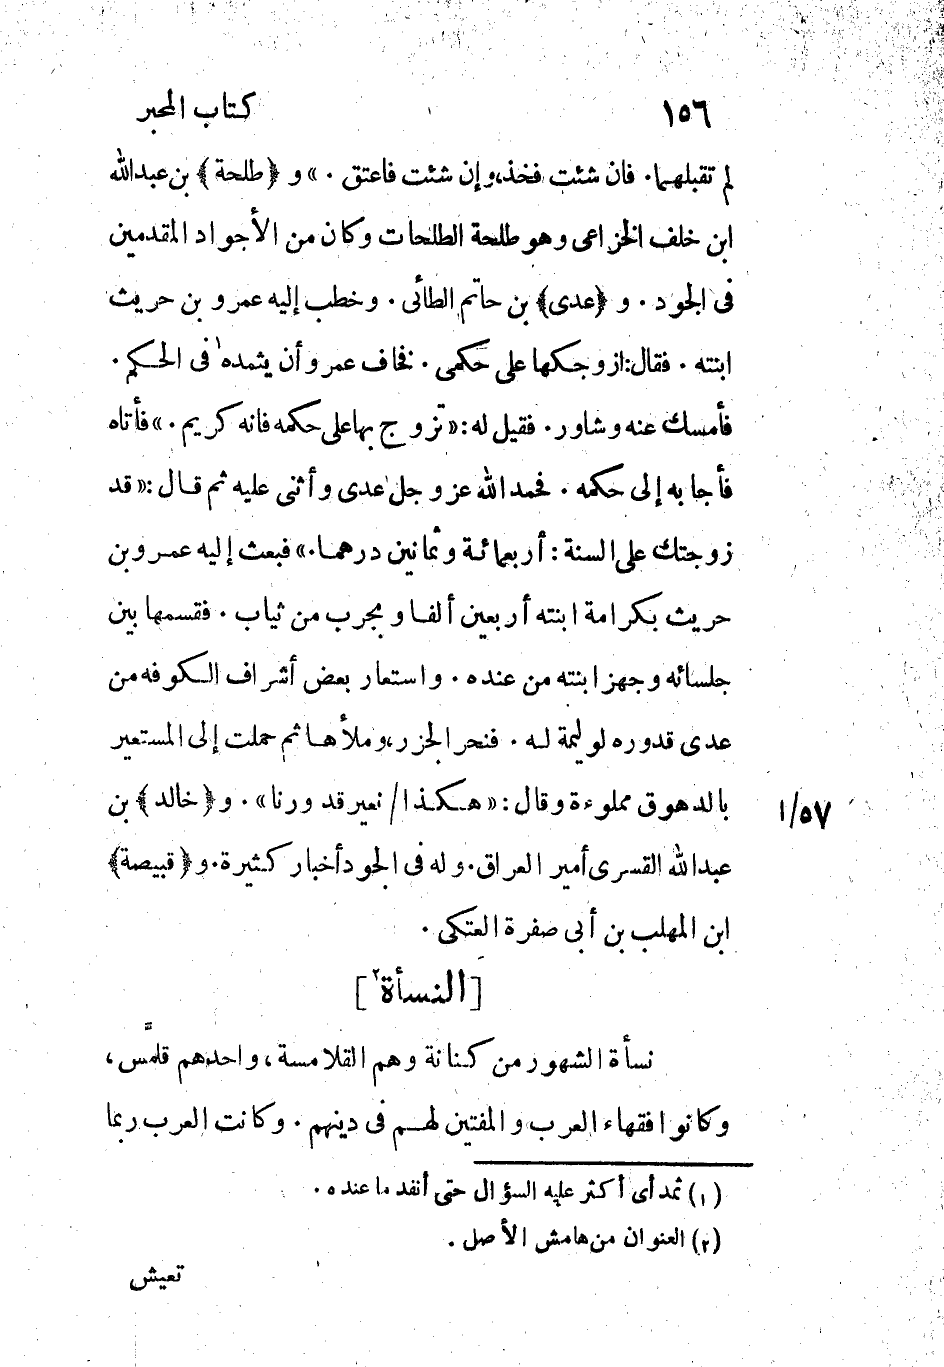 ١٥٦ كتاب المحبر
لم تقبلهما. فان شئت فخذ، وإن شئت فاعتق.» و ﴿طلحة﴾ بن عبدالله
ابن خلف الخزاعى وهو طلحة الطلحات وكان من الأجواد المقدمين
فى الجود. و ﴿عدى﴾ بن حاتم الطائى. وخطب إليه عمرو بن حريث
ابنته. فقال: ازوجكها على حكمى. فخاف عمرو أن يثمده١ فى الحكم.
فأمسك عنه وشاور. فقيل له: «تزوج بها على حكمه فانه كريم.» فأتاه
فأجابه إلى حكمه. فحمد الله عز وجل عدى وأثنى عليه ثم قال: «قد
زوجتك على السنة: أربعمائة وثمانين درهما.» فبعث إليه عمرو بن
حريث بكرامة ابنته أربعين ألفا ومجرب من ثياب. فقسمها بين
جلسائه وجهز ابنته من عنده. واستعار بعض أشراف الكوفه من
عدى قدوره لوليمة له. فنحر الجزر، وملأها ثم حملت إلى المستعير
بالدهوق مملوءة وقال: «هكذا/ نعير قدورنا». و ﴿خالد﴾ بن
١/٥٧
عبدالله القسرى أمير العراق. وله فى الجود أخبار كثيرة. و ﴿قبيصة﴾
ابن المهلب بن أبى صفرة العتكى.
[النسأة٢]
نسأة الشهور من كنانة وهم القلامسة، واحدهم قلمّس،
وكانوا فقهاء العرب والمفتين لهم فى دينهم. وكانت العرب ربما
(١) ثمد أى أكثر عليه السؤال حتى أنفد ما عنده.
(٢) العنوان من هامش الأصل.
تعيش